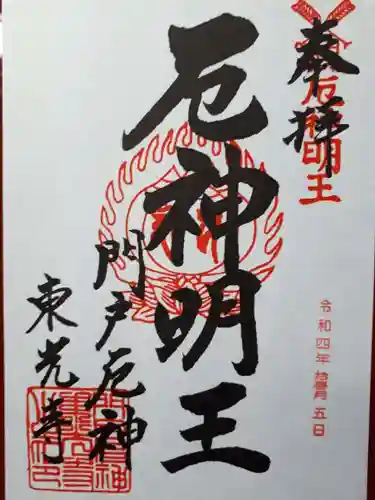 奉拝
厄神明王
厄神明王
門戸厄神
東光寺
令和四年拾壹月五日